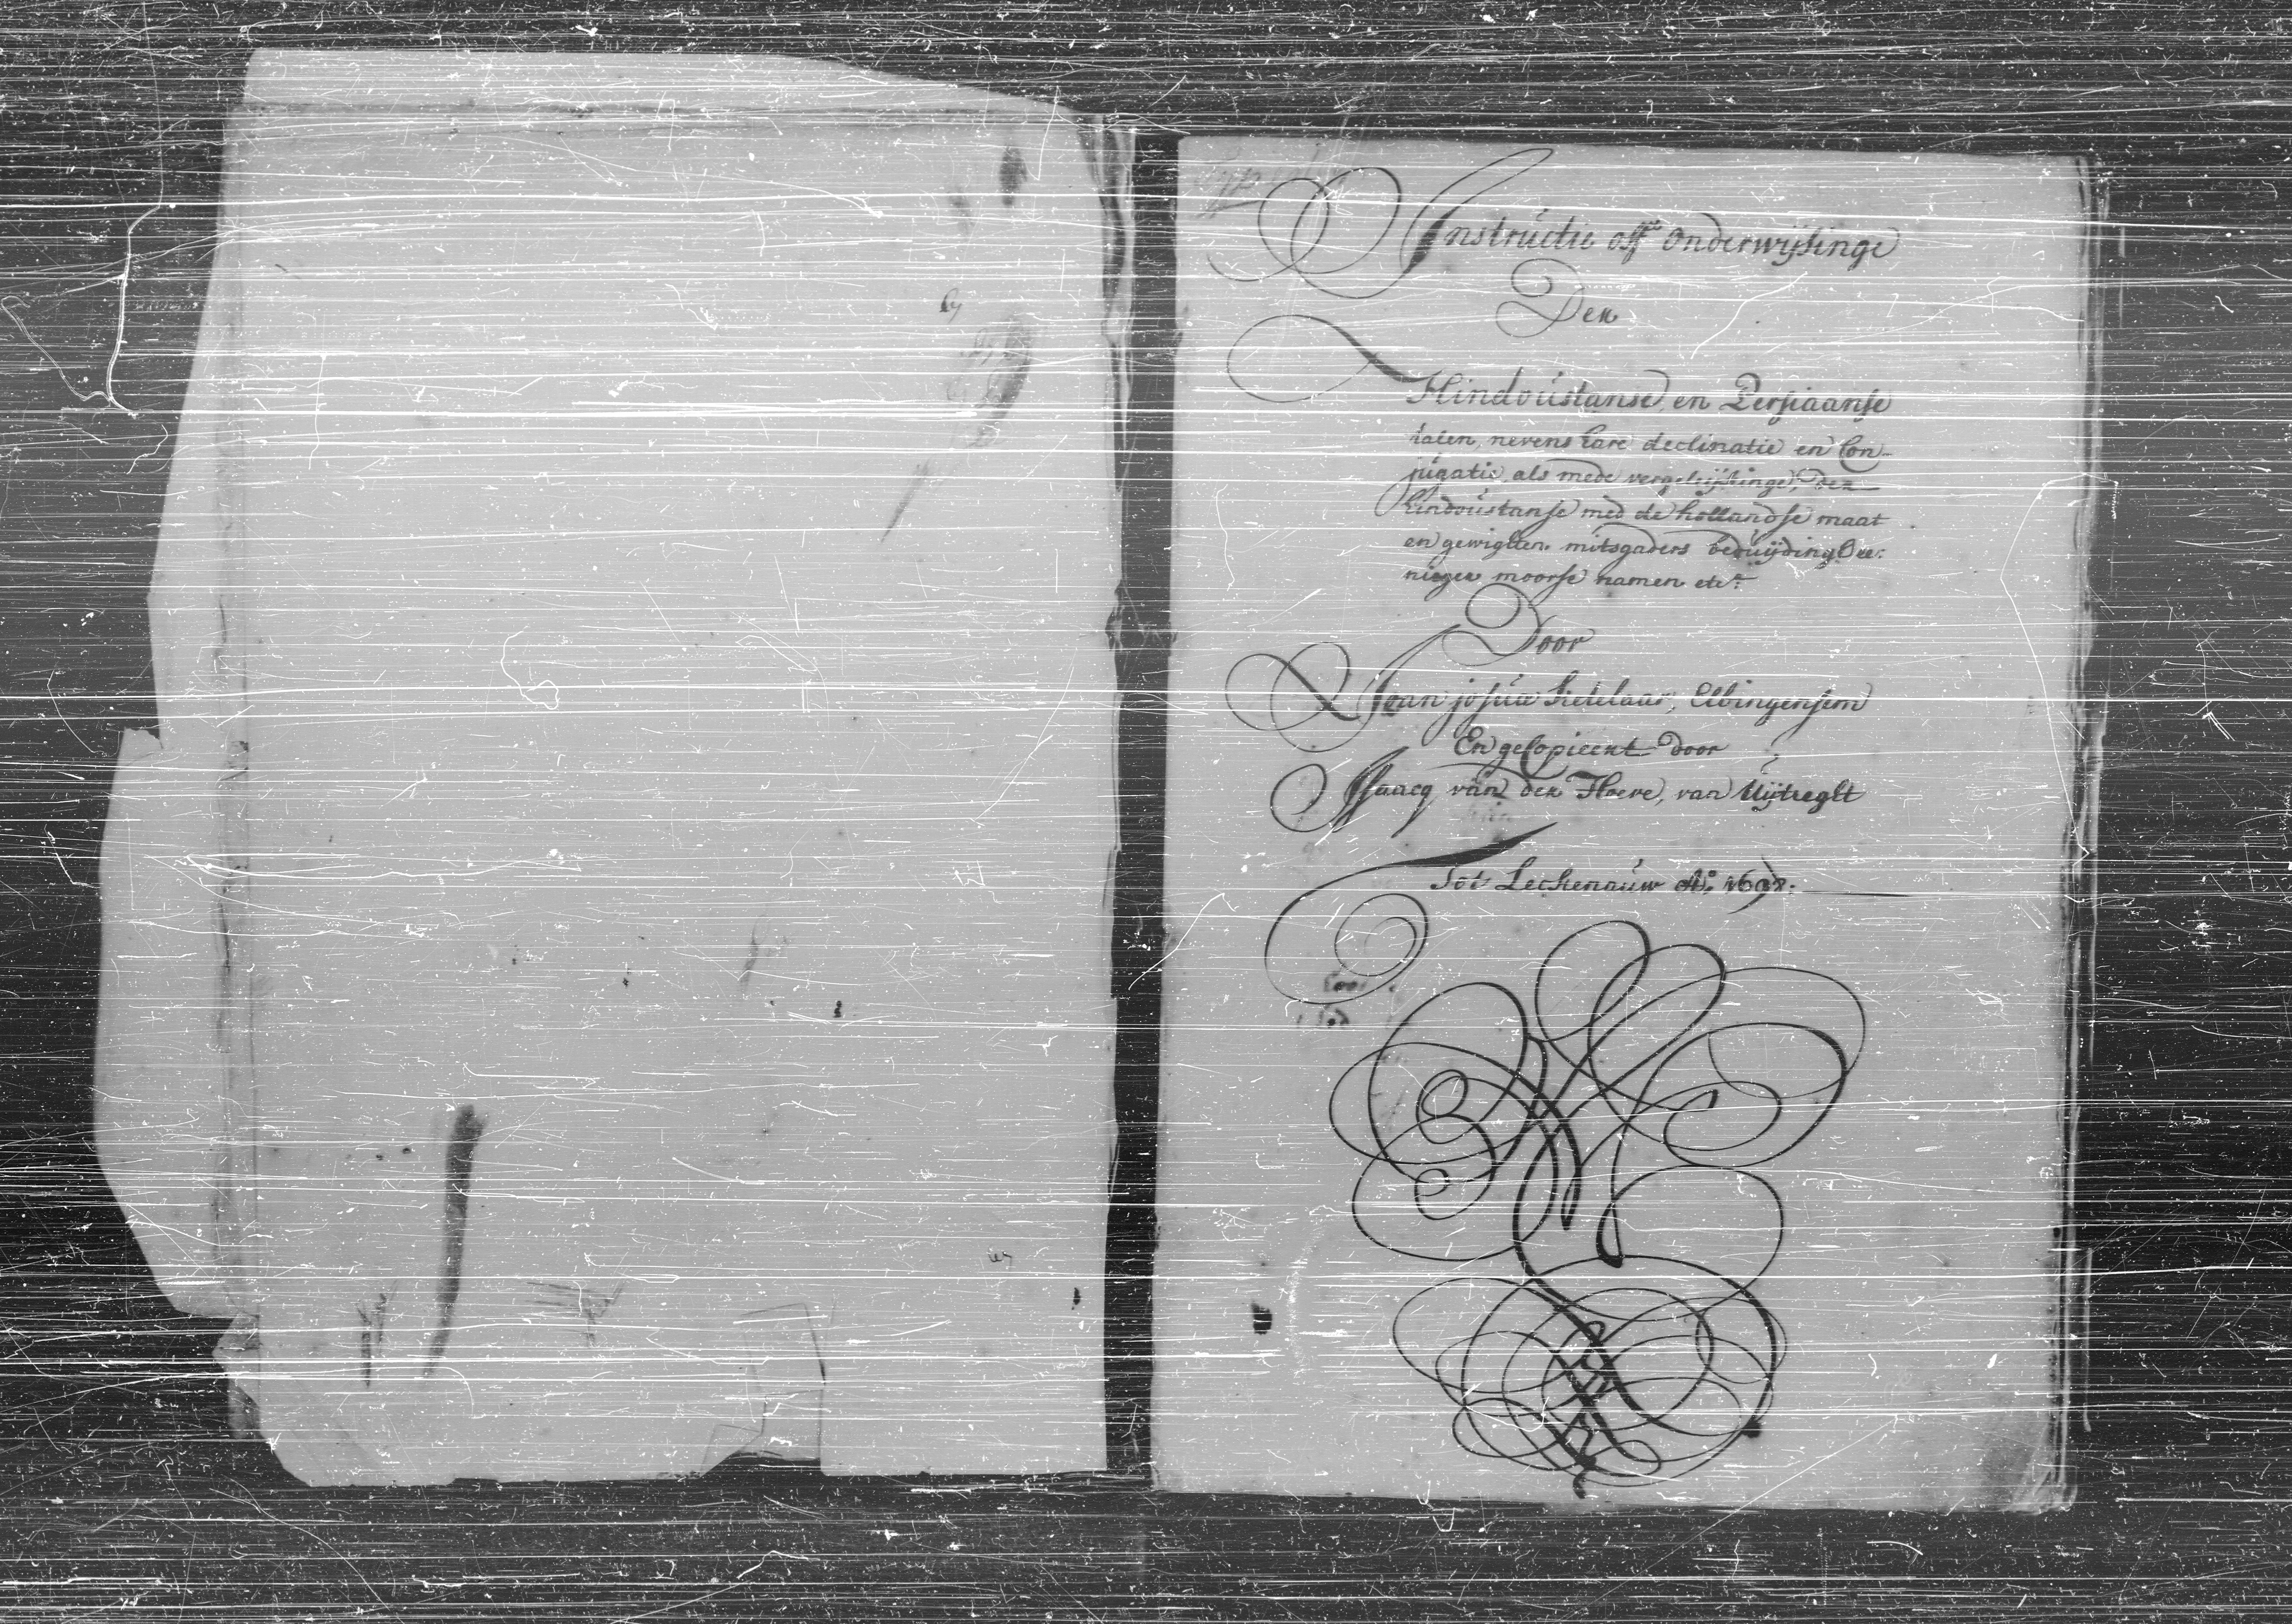 Instructie off Onderwijsinge
Der
Hindoustanse en Persiaanse
talen, nevens hare declinatie en Con-
jugatie, als mede vergeleijkinge, der
hindoustanse med de hollandse maat
en gewigten mitsgaders beduijdinge ee:
niger moorse namen etc.
Door
Joan josua Ketelaar, Elbingensem
En gecopieert door
Isaacq van der Hoeve, van Uijtreght
Tot Leckenauw Ao. 1698.